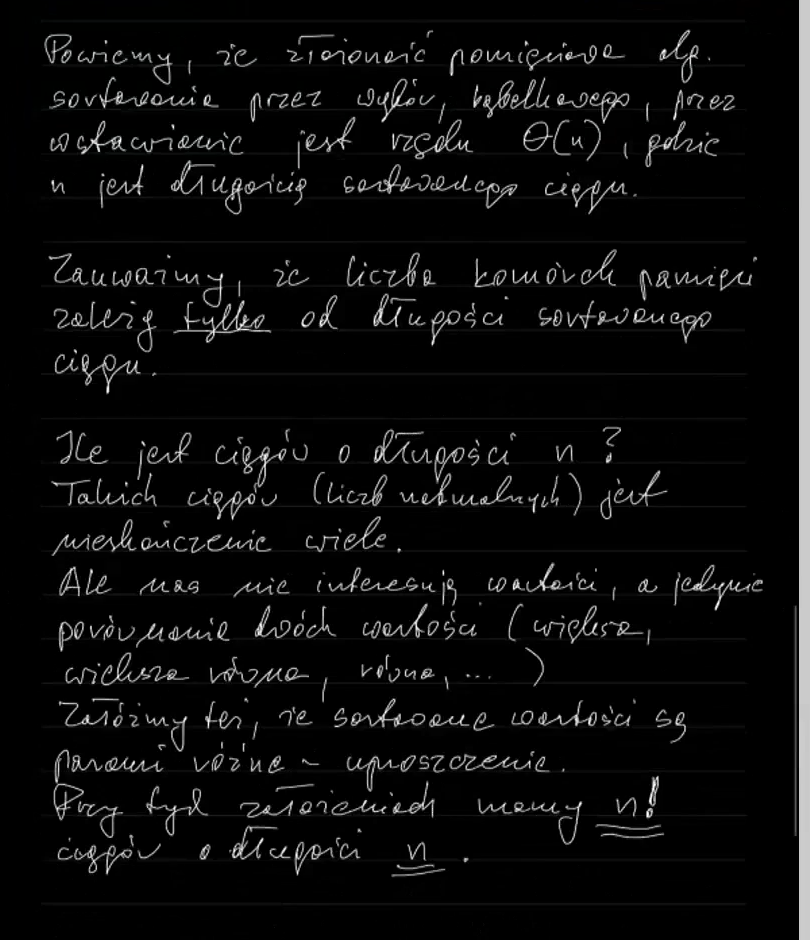 Powiemy, że złożoność pamięciowa alg.
sortowania przez wybór, bąbelkowego, przez
wstawianie jest rzędu Θ(n), gdzie
n jest długością sortowanego ciągu.
Zauważmy, że liczba komórek pamięci
zależy tylko od długości sortowanego
ciągu.
Ile jest ciągów o długości n?
Takich ciągów (liczb naturalnych) jest
nieskończenie wiele.
Ale nas nie interesują wartości, a jedynie
porównanie dwóch wartości (większa,
większa równa, równa, ...)
Załóżmy też, że sortowane wartości są
parami różne - uproszczenie.
Przy tych założeniach mamy n!
ciągów o długości n.